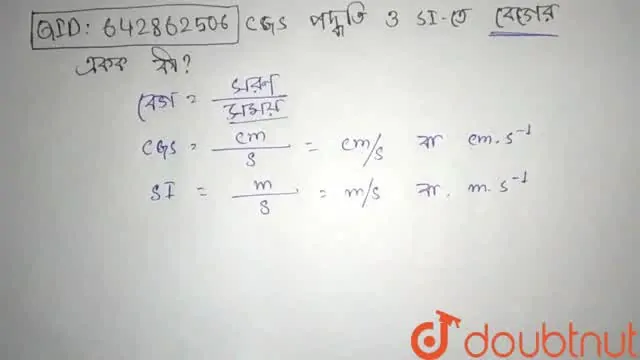 QID: 642862506 CGS পদ্ধতি ও SI-তে বেগের
একক কী?
বেগ = সরণ / সময়
CGS = cm / s = cm/s বা cm. s⁻¹
SI = m / s = m/s বা. m. s⁻¹
doubtnut